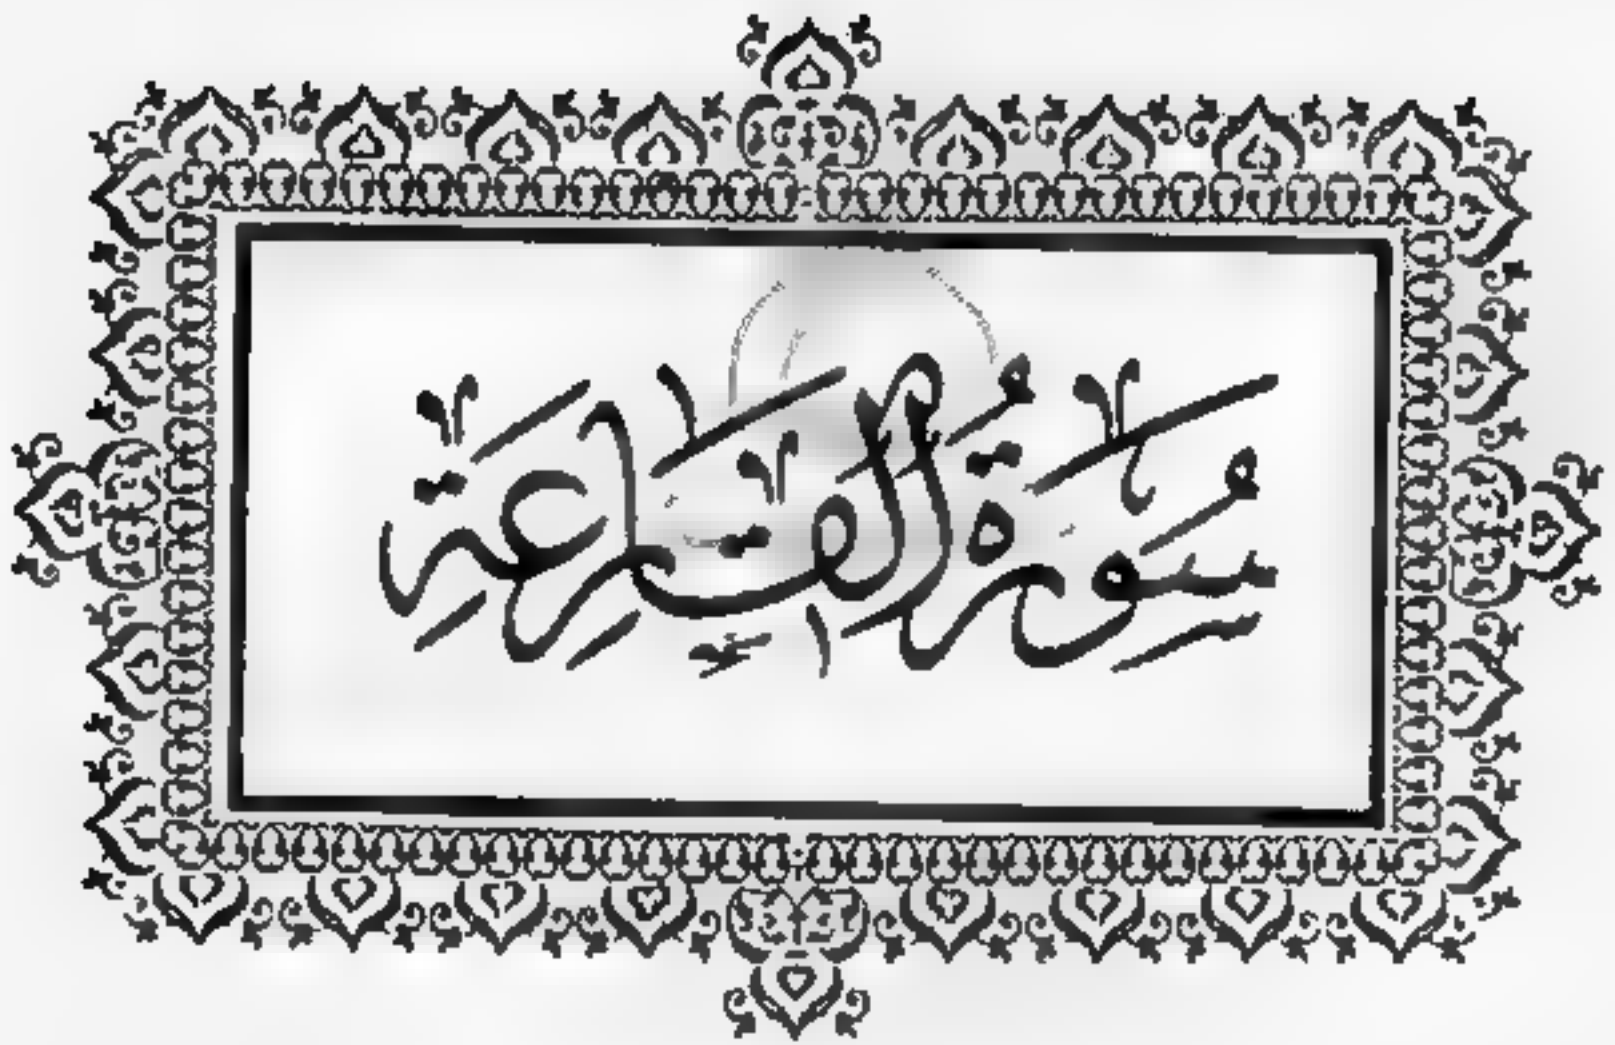 سُورَةُ القَارِعَةِ